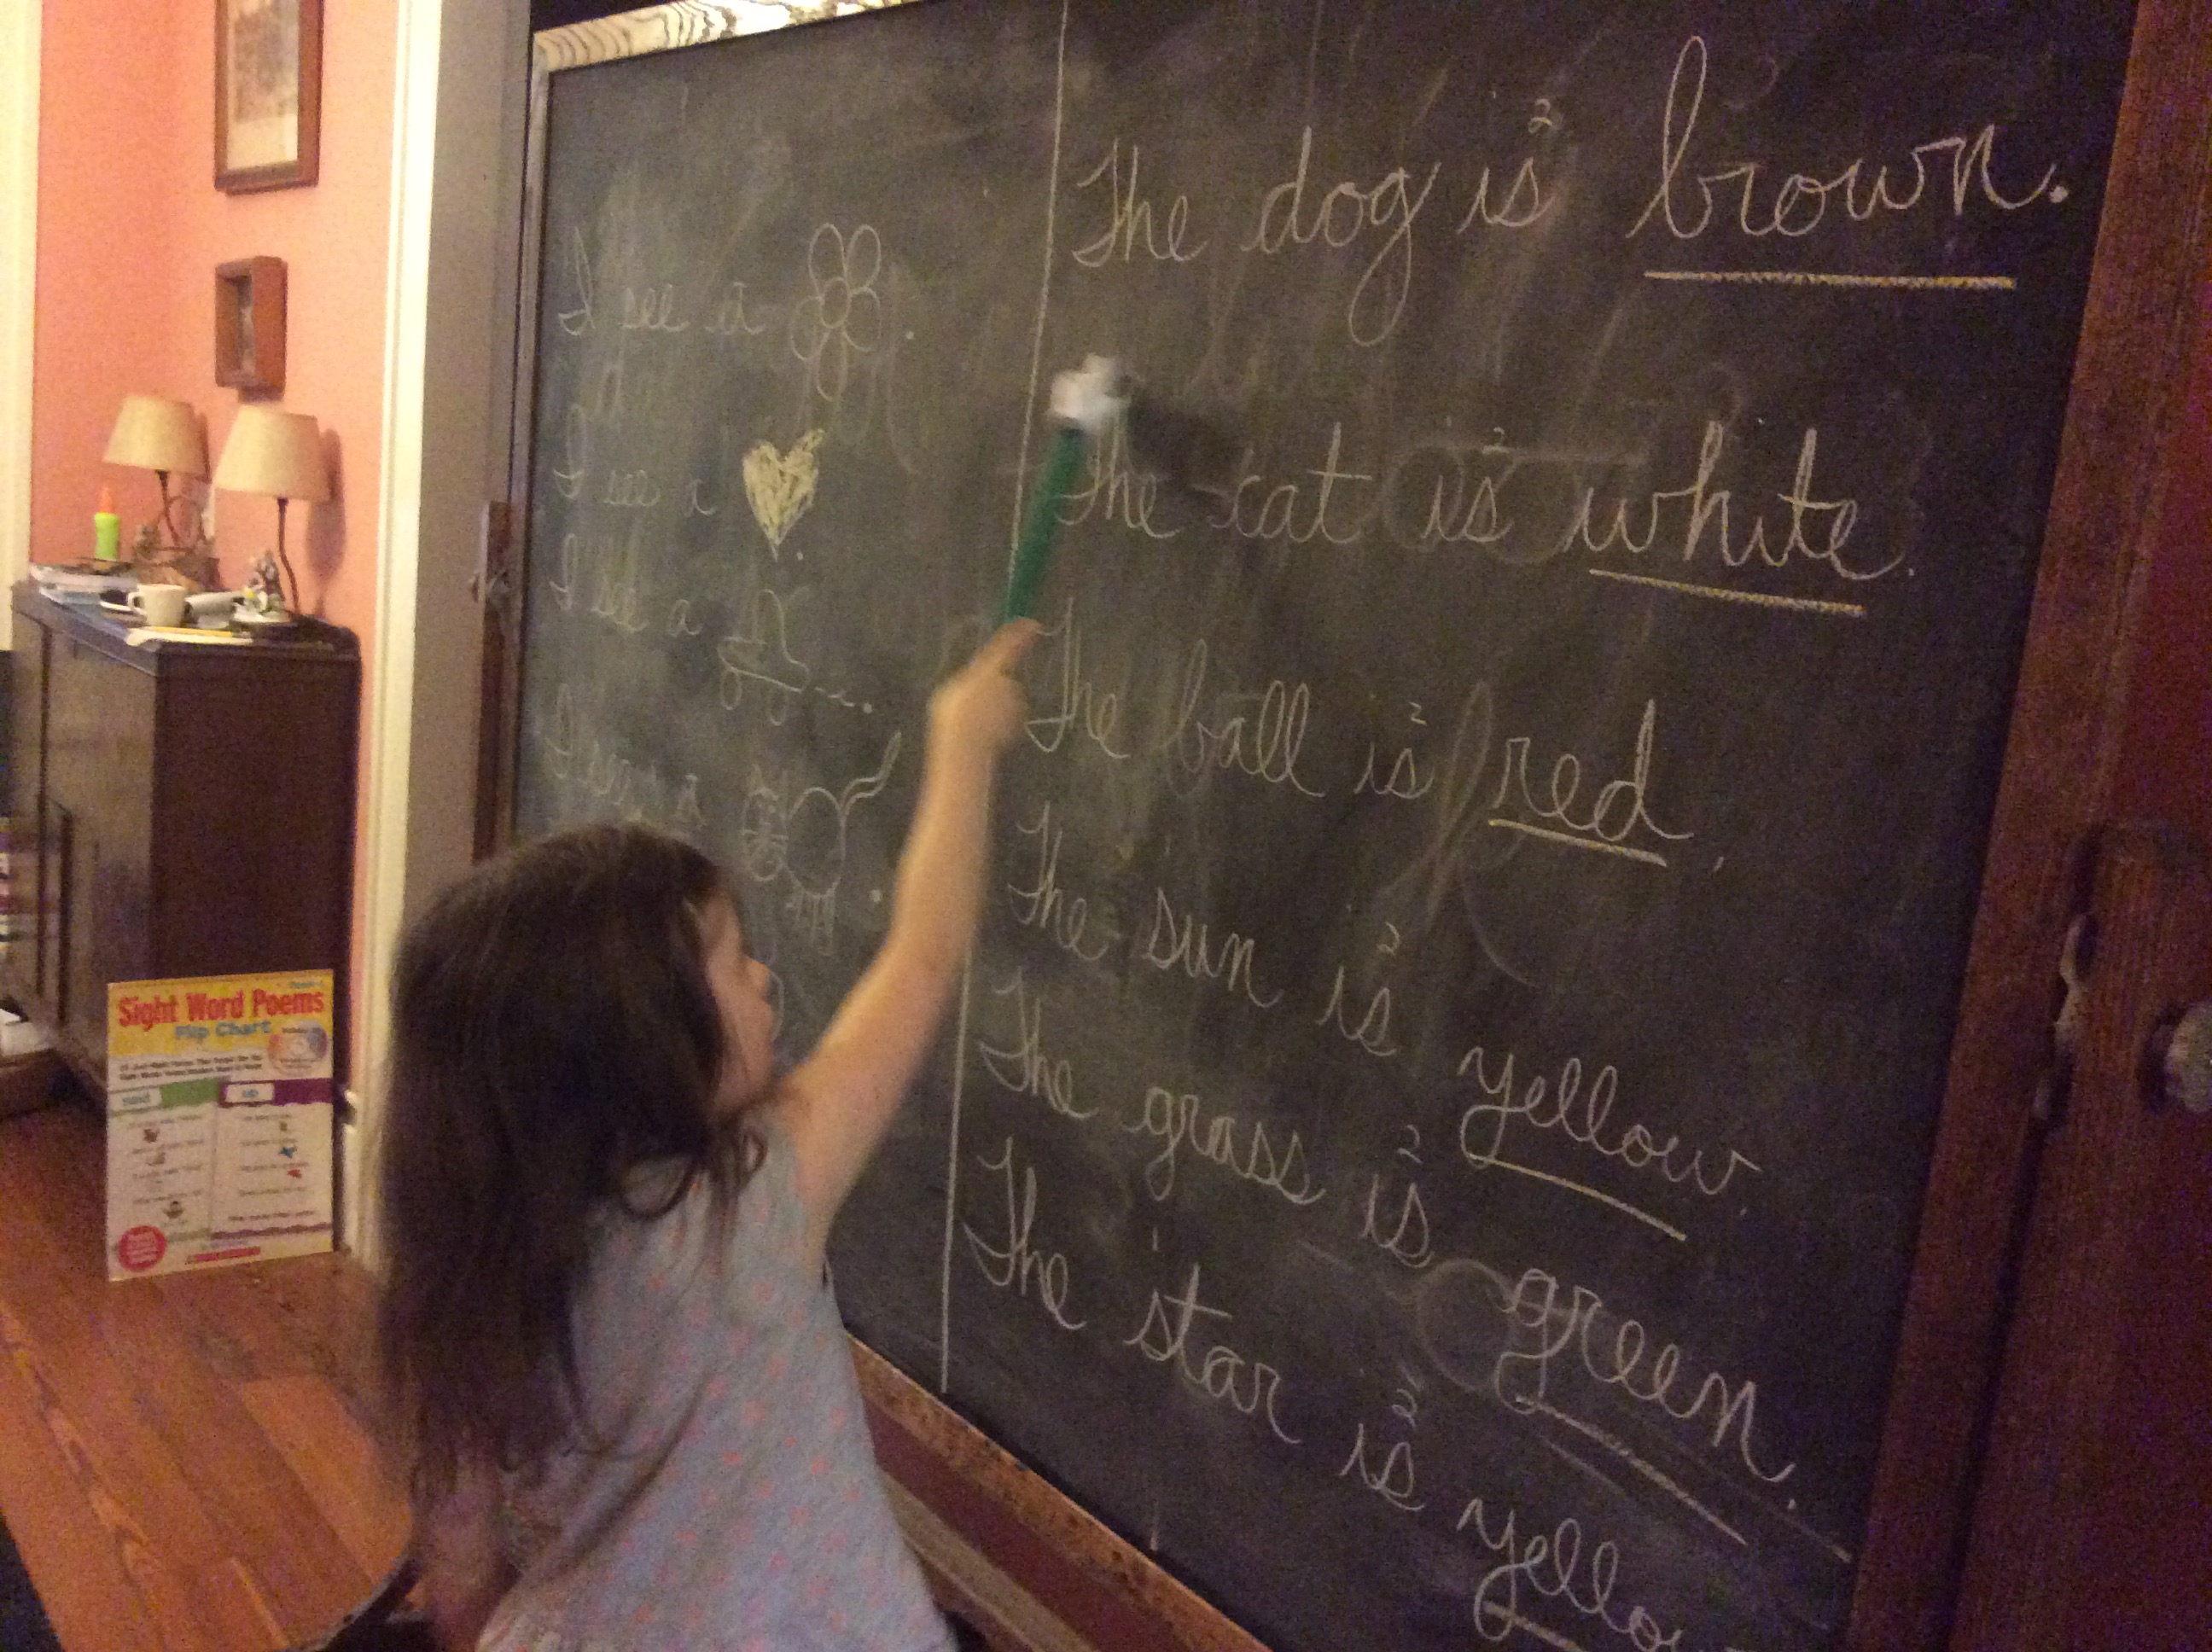 I see a
I see a
I see a
I see a
The dog is² brown.
The cat is² white.
The ball is² red.
The sun is² yellow.
The grass is² green.
The star is² yello
Sight Word Poems
Flip Chart